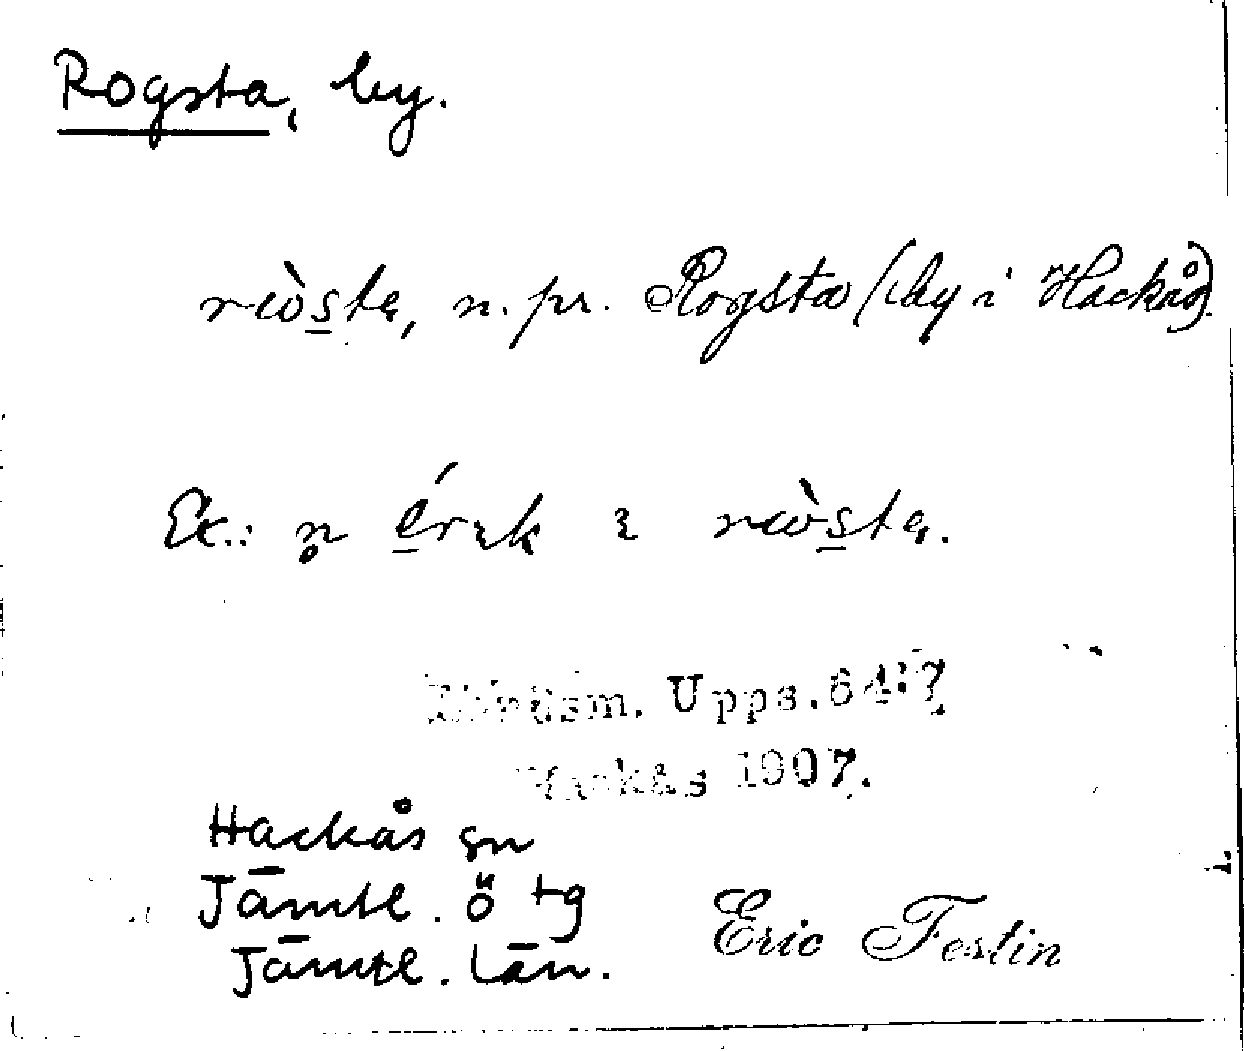 Rogsta, by.
rẁsta, n. pr. Rogsta (by i Hackås).
Ex.: n̥ érik i rẁsta.
Upps. 64:7
Hackås 1907.
Hackås sn
Jämtl. ö tg
Jämtl. län.
Eric Festin